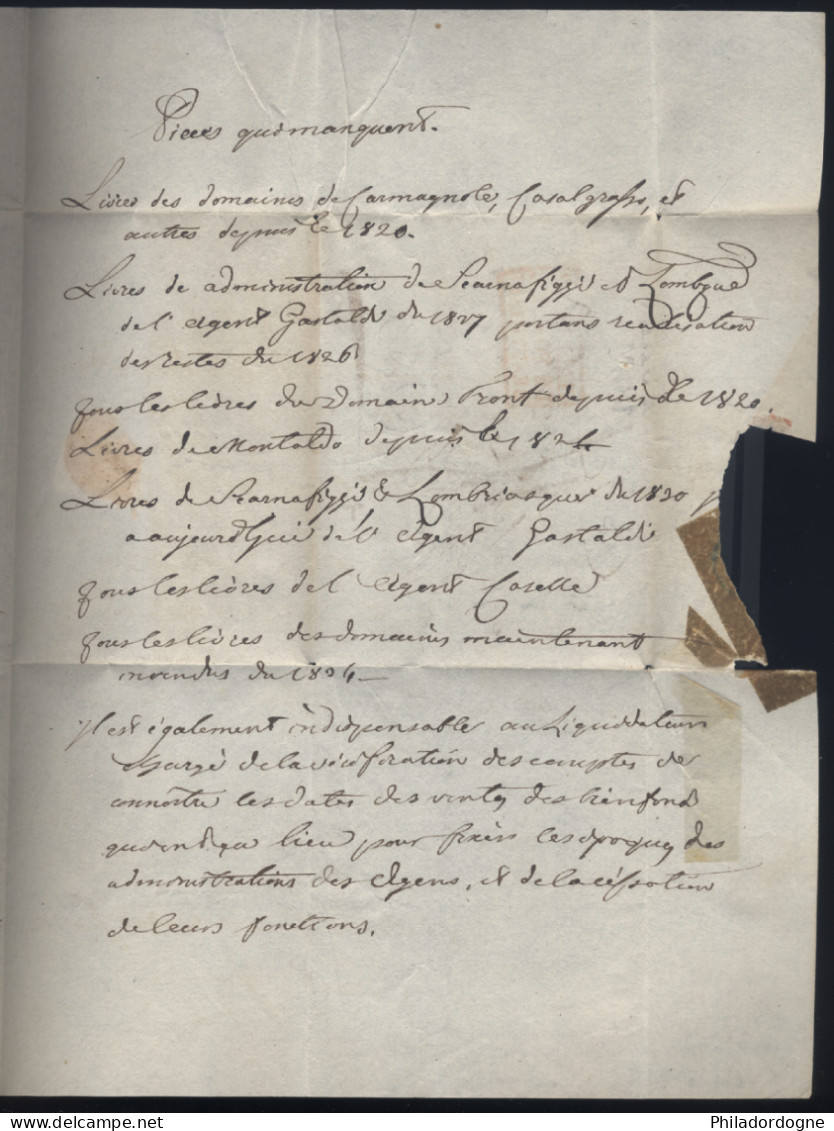 Pieces qui manquent.
Livres des domaines de Carmagnole, Casalgrasso, et
autres depuis le 1820.
Livres de administration de Scarnafiggi et Lombque
de l'Agent Gastaldi du 1827 portans realisation
des restes du 1826
Tous les livres du Domain Front depuis le 1820.
Livres de Montaldo depuis le 1824
Livres de Scarnafiggi & Lombriasque du 1820
a aujourd'hui de l'Agent Gastaldi
Tous les livres de l'Agent Caselle
Tous les livres des domaines maintenant
invendus du 1824
Il est également indispensable au Liquidateur
chargé de la vérification des comptes de
connoitre les dates des ventes des bienfonds
qui ont eu lieu pour fixer les époques des
administrations des Agens, et de la cessation
de leurs fonctions.
Philadordogne